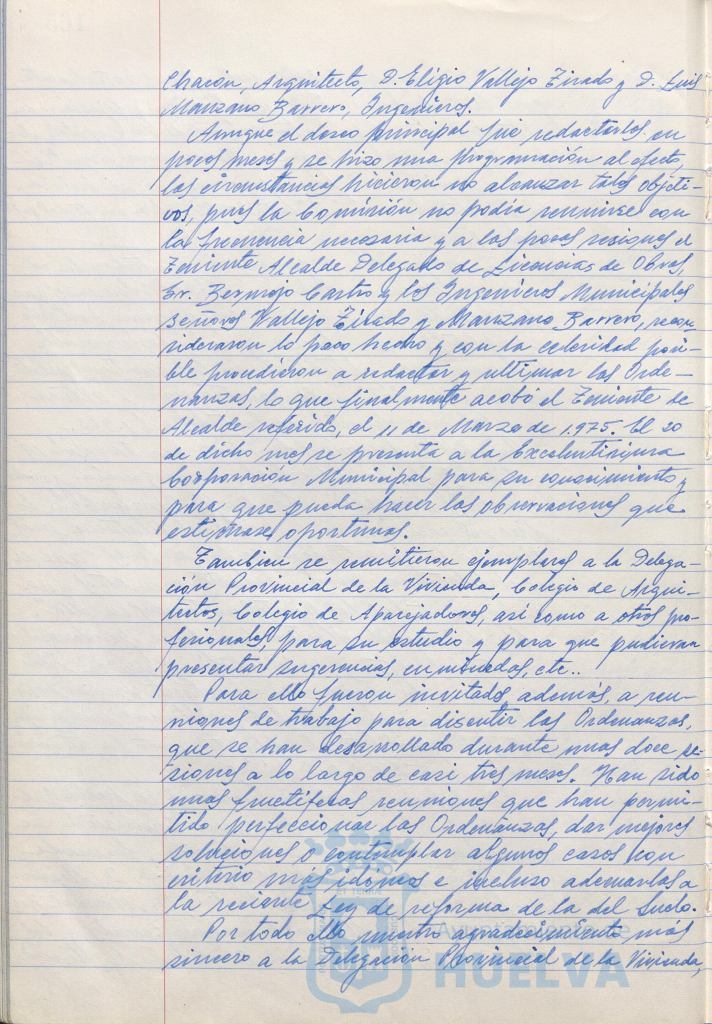 Chacón, Arquitecto, D. Eligio Vallejo Tirado y D. Luis
Manzano Barrero, Ingenieros.
Aunque el deseo principal fue redactarlos en
pocos meses y se hizo una programación al efecto,
las circunstancias hicieron no alcanzar tales objeti-
vos, pues la Comisión no podía reunirse con
la frecuencia necesaria y a las pocas sesiones el
Teniente Alcalde Delegado de Licencias de Obras,
Sr. Bermejo Castro y los Ingenieros Municipales
señores Vallejo Tirado y Manzano Barrero, recon
sideraron lo poco hecho y con la celeridad posi-
ble procedieron a redactar y ultimar las Orde-
nanzas, lo que finalmente acabó el Teniente de
Alcalde referido, el 11 de Marzo de 1.975. El 20
de dicho mes se presenta a la Excelentísima
Corporación Municipal para su conocimiento y
para que pueda hacer las observaciones que
estimase oportunas.
Tambien se remitieron ejemplares a la Delega-
ción Provincial de la Vivienda, Colegio de Arqui-
tectos, Colegio de Aparejadores, así como a otros pro-
fesionales, para su estudio y para que pudieran
presentar sugerencias, enmiendas, etc..
Para ello fueron invitados además, a reu-
niones de trabajo para discutir las Ordenanzas,
que se han desarrollado durante unas doce se-
siones a lo largo de casi tres meses. Han sido
unas fructíferas reuniones que han permi-
tido perfeccionar las Ordenanzas, dar mejores
soluciones o contemplar algunos casos con
criterio más idóneos e incluso adecuarlas a
la reciente Ley de reforma de la del Suelo.
Por todo ello nuestro agradecimiento más
sincero a la Delegación Provincial de la Vivienda,
HUELVA